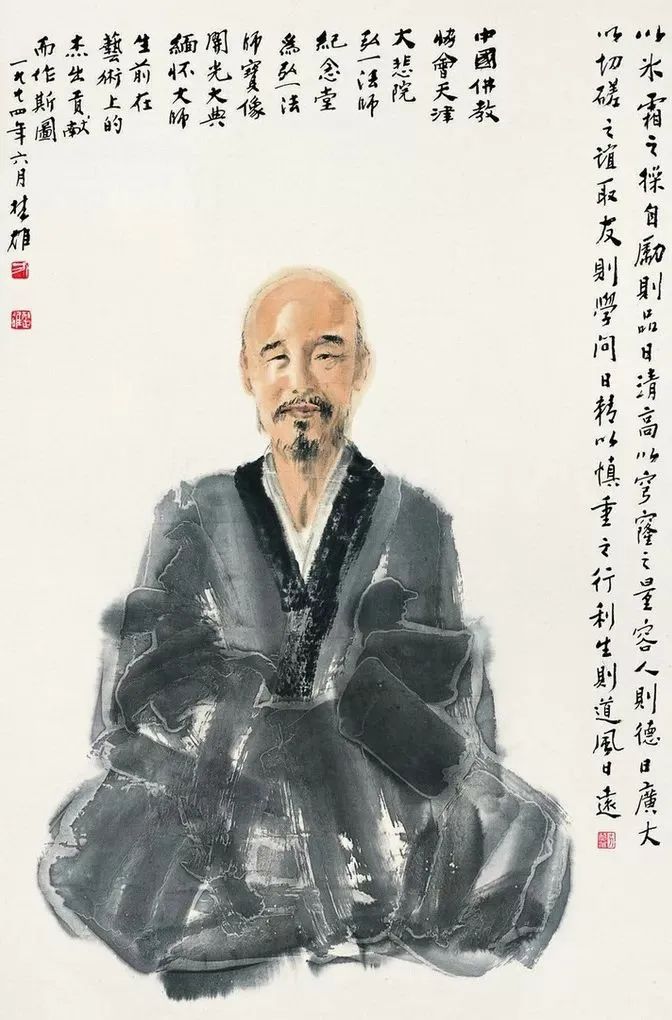 以氷霜之操自勵則品日清高以穹窿之量容人則德日廣大
以切磋之誼取友則學問日精以慎重之行利生則道風日遠
中國佛教
協會天津
大悲院
弘一法師
紀念堂
為弘一法
師寶像
開光大典
緬懷大師
生前在
藝術上的
杰出貢献
而作斯圖
一九九四年六月